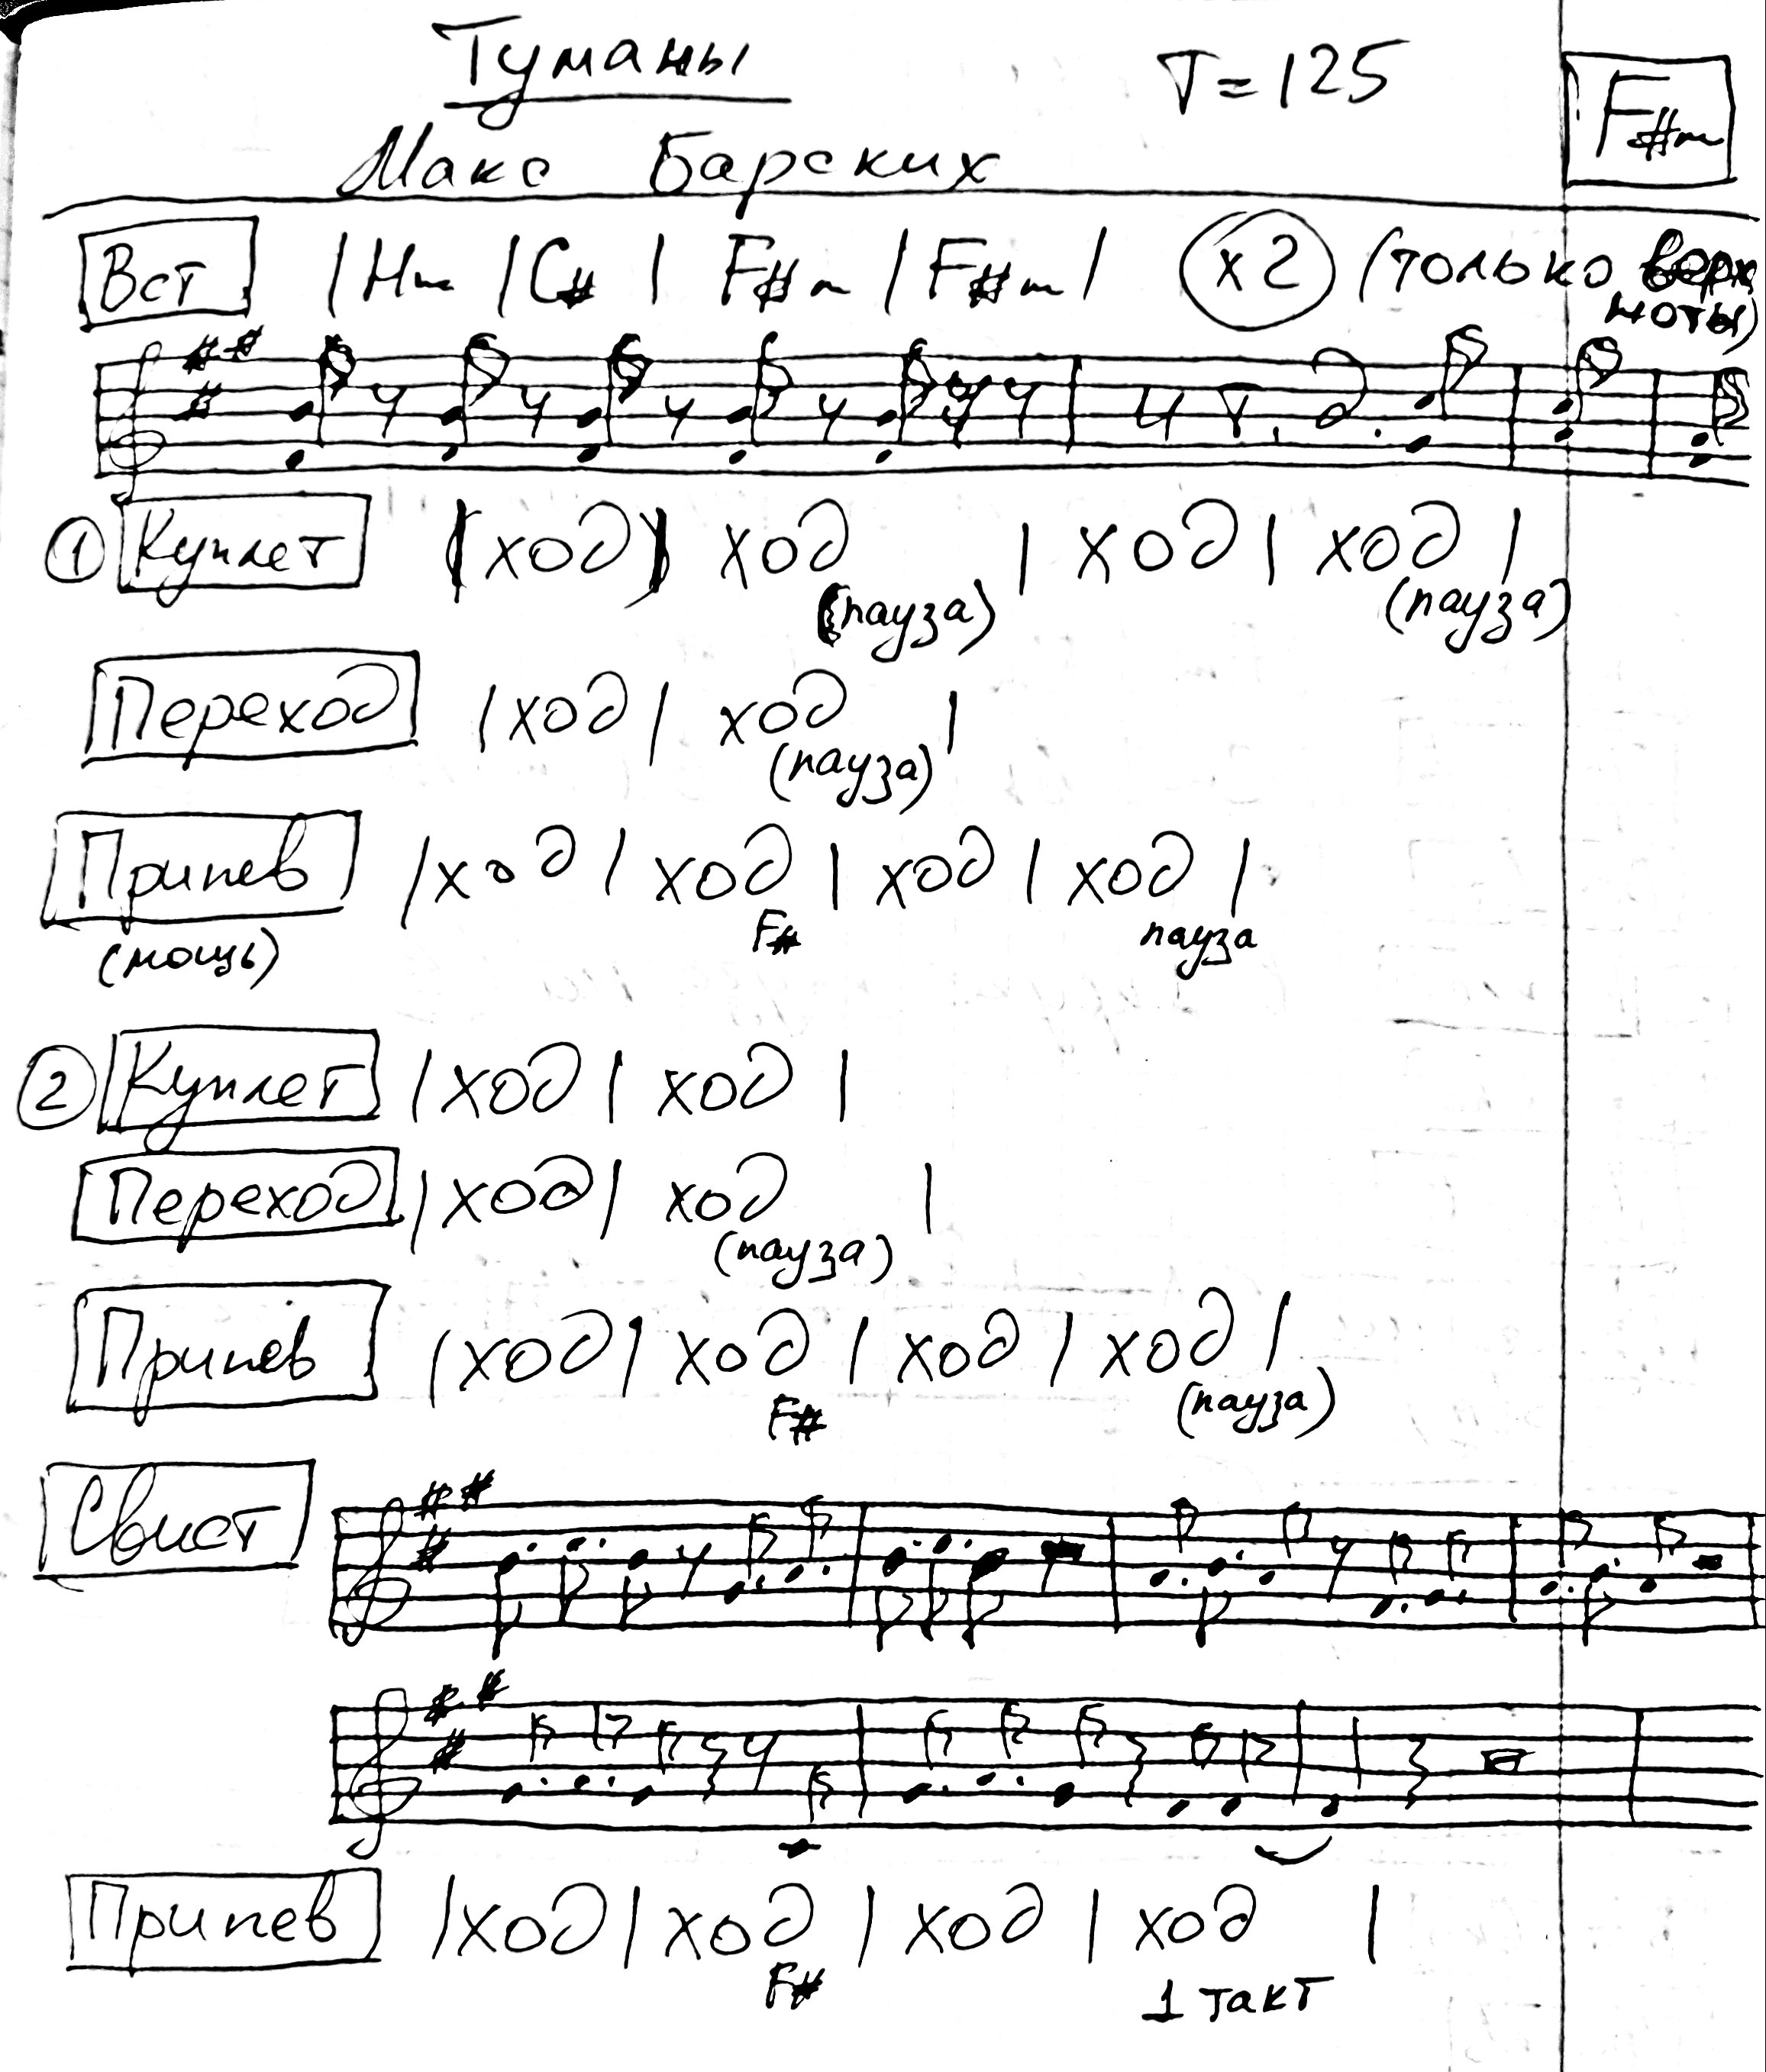 Туманы T=125 F#m
Макс Барских
Вст |Hm |C# | F#m | F#m | x2 (только верх
ноты)
1 Куплет (ход) ход | ход | ход |
(пауза) (пауза)
Переход |ход| ход |
(пауза)
Припев |ход | ход | ход | ход |
(мощь) F# пауза
2 Куплет |ход | ход |
Переход |ход| ход |
(пауза)
Припев |ход| ход | ход | ход |
F# (пауза)
Свист
Припев |ход| ход | ход | ход |
F# 1 такт